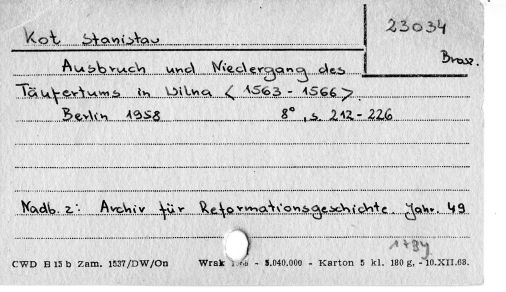 23034
Kot Stanisław
Brosz.
Ausbruch und Niedergang des
Täufertums in Wilna < 1563 - 1566 >.
Berlin 1958 8°, s. 212-226
Nadb. z: Archiv für Reformationsgeschichte. Jahr. 49
CWD B 15 b Zam. 1537/DW/On Wrak - 5.040.000 - Karton 5 kl. 180 g. - 10.XII.68.